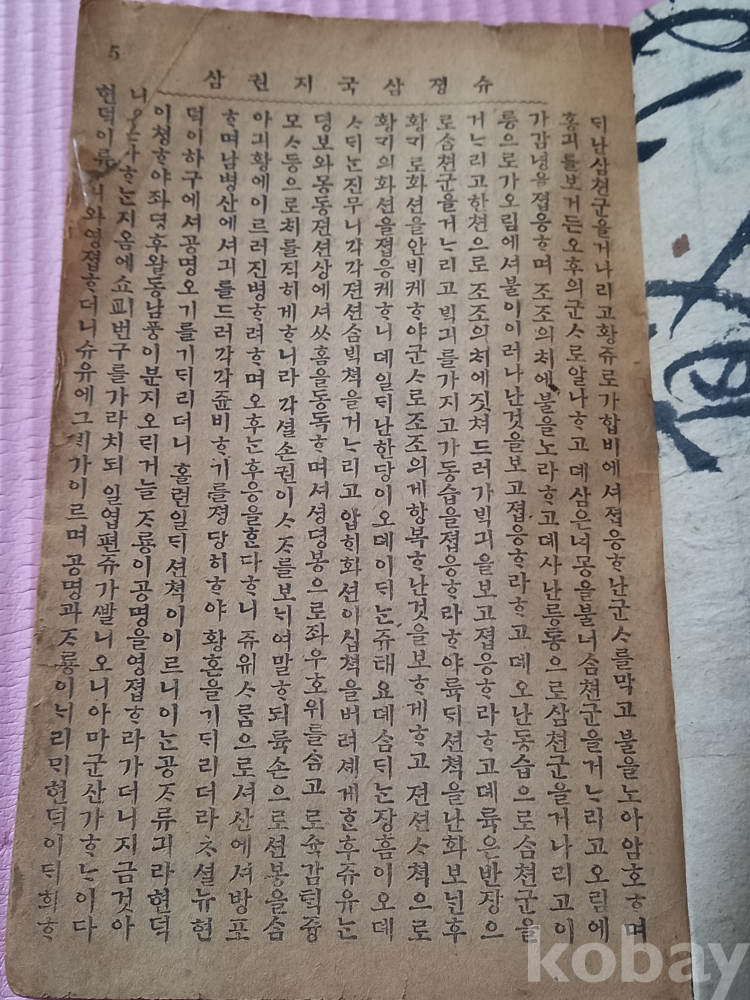 슈졍삼국지권삼
5
ᄃᆡ난삼쳔군을거나리고황쥬로가합비에셔졉응ᄒᆞ난군ᄉᆞ를막고불을노아암호ᄒᆞ며
홍긔를보거든오후의군ᄉᆞ로알나ᄒᆞ고뎨삼은녀몽을불너ᄉᆞᆷ쳔군을거ᄂᆞ리고오림에
가감녕을졉응ᄒᆞ며조조의쳐에불을노라ᄒᆞ고뎨사난릉통으로삼쳔군을거나리고이
릉으로가오림에셔불이이러나난것을보고졉응ᄒᆞ라ᄒᆞ고뎨오난동습으로ᄉᆞᆷ쳔군을
거ᄂᆞ리고한쳔으로조조의쳐에짓쳐드러가ᄇᆡᆨ긔을보고졉응ᄒᆞ라ᄒᆞ고뎨륙은반장으
로ᄉᆞᆷ쳔군을거ᄂᆞ리고ᄇᆡᆨ긔를가지고가동습을졉응ᄒᆞ라ᄒᆞ야륙ᄃᆡ션쳑을난화보ᄂᆡᆫ후
황ᄀᆡ로화션을안ᄇᆡ케ᄒᆞ야군ᄉᆞ로조조의게항복ᄒᆞ난것을보ᄒᆞ게ᄒᆞ고젼션ᄉᆞ쳑으로
황ᄀᆡ의화션을졉응케ᄒᆞ니뎨일ᄃᆡ난한당이오뎨이ᄃᆡᄂᆞᆫ쥬태요뎨ᄉᆞᆷᄃᆡᄂᆞᆫ장흠이오뎨
ᄉᆞᄃᆡᄂᆞᆫ진무니각각젼션ᄉᆞᆷᄇᆡᆨ쳑을거ᄂᆞ리고압ᄒᆡ화션이십쳑을버려셰게ᄒᆞᆫ후쥬유ᄂᆞᆫ
뎡보와몽동젼션상에셔ᄊᆞ홈을동독ᄒᆞ며셔셩뎡봉으로좌우호위를ᄉᆞᆷ고로슉감ᄐᆡᆨ즁
모ᄉᆞ등으로ᄎᆡ를직히게ᄒᆞ니라각셜손권이ᄉᆞᄌᆞ를보ᄂᆡ여말ᄒᆞ되륙손으로션봉을ᄉᆞᆷ
아긔황에이르러진병ᄒᆞ려ᄒᆞ며오후ᄂᆞᆫ후응을ᄒᆞᆫ다ᄒᆞ니쥬위ᄉᆞ룸으로셔산에셔방포
ᄒᆞ며남병산에셔긔를드러각각쥰비ᄒᆞ기를졍당히ᄒᆞ야황혼을기ᄃᆡ리더라ᄎᆞ셜뉴현
덕이하구에셔공명오기를기ᄃᆡ리더니홀련일ᄃᆡ션쳑이이르니이ᄂᆞᆫ공ᄌᆞ류긔라현덕
이쳥ᄒᆞ야좌뎡후왈동남풍이분지오ᄅᆡ거늘ᄌᆞ룡이공명을영졉ᄒᆞ라가더니지금것아
니오ᄂᆞᆫ지옴에쇼ᄑᆡ번구를가라치되일엽편쥬가ᄲᅡᆯ니오니아마군산가ᄒᆞᄂᆞ이다
현덕이류긔와영졉ᄒᆞ더니슈유에그ᄇᆡ가이르며공명과ᄌᆞ룡이ᄂᆡ리ᄆᆡ현덕이ᄃᆡ희ᄒᆞ
kobay